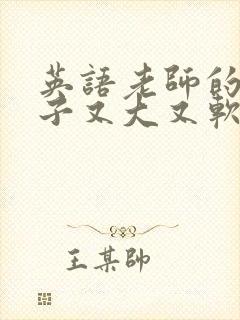 英語老師的
子又大又軟
王某帥